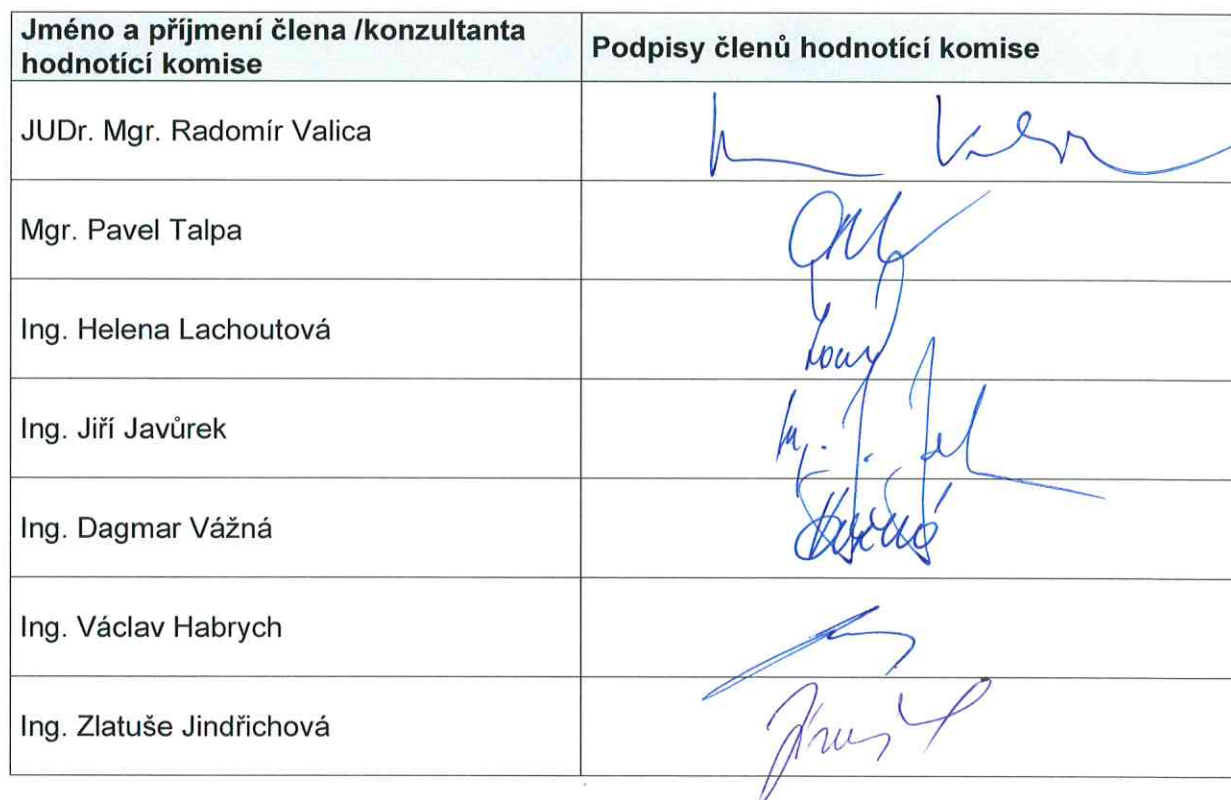 Jméno a příjmení člena /konzultanta
hodnotící komise
Podpisy členů hodnotící komise
JUDr. Mgr. Radomír Valica
Mgr. Pavel Talpa
Ing. Helena Lachoutová
Ing. Jiří Javůrek
Ing. Dagmar Vážná
Ing. Václav Habrych
Ing. Zlatuše Jindřichová